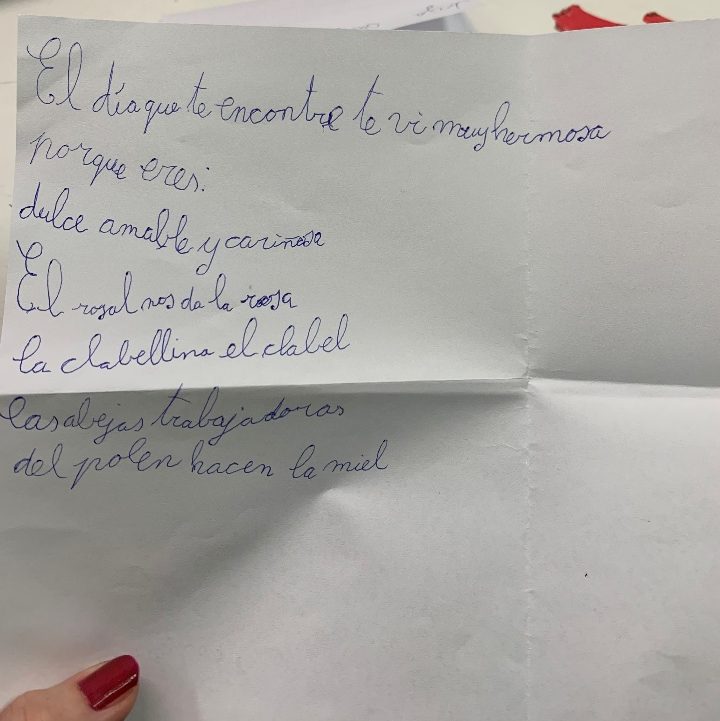 El día que te encontre te vi muy hermosa
porque eres:
dulce amable y cariñosa
El rosal nos da la rosa
la clabellina el clabel
las abejas trabajadoras
del polen hacen la miel